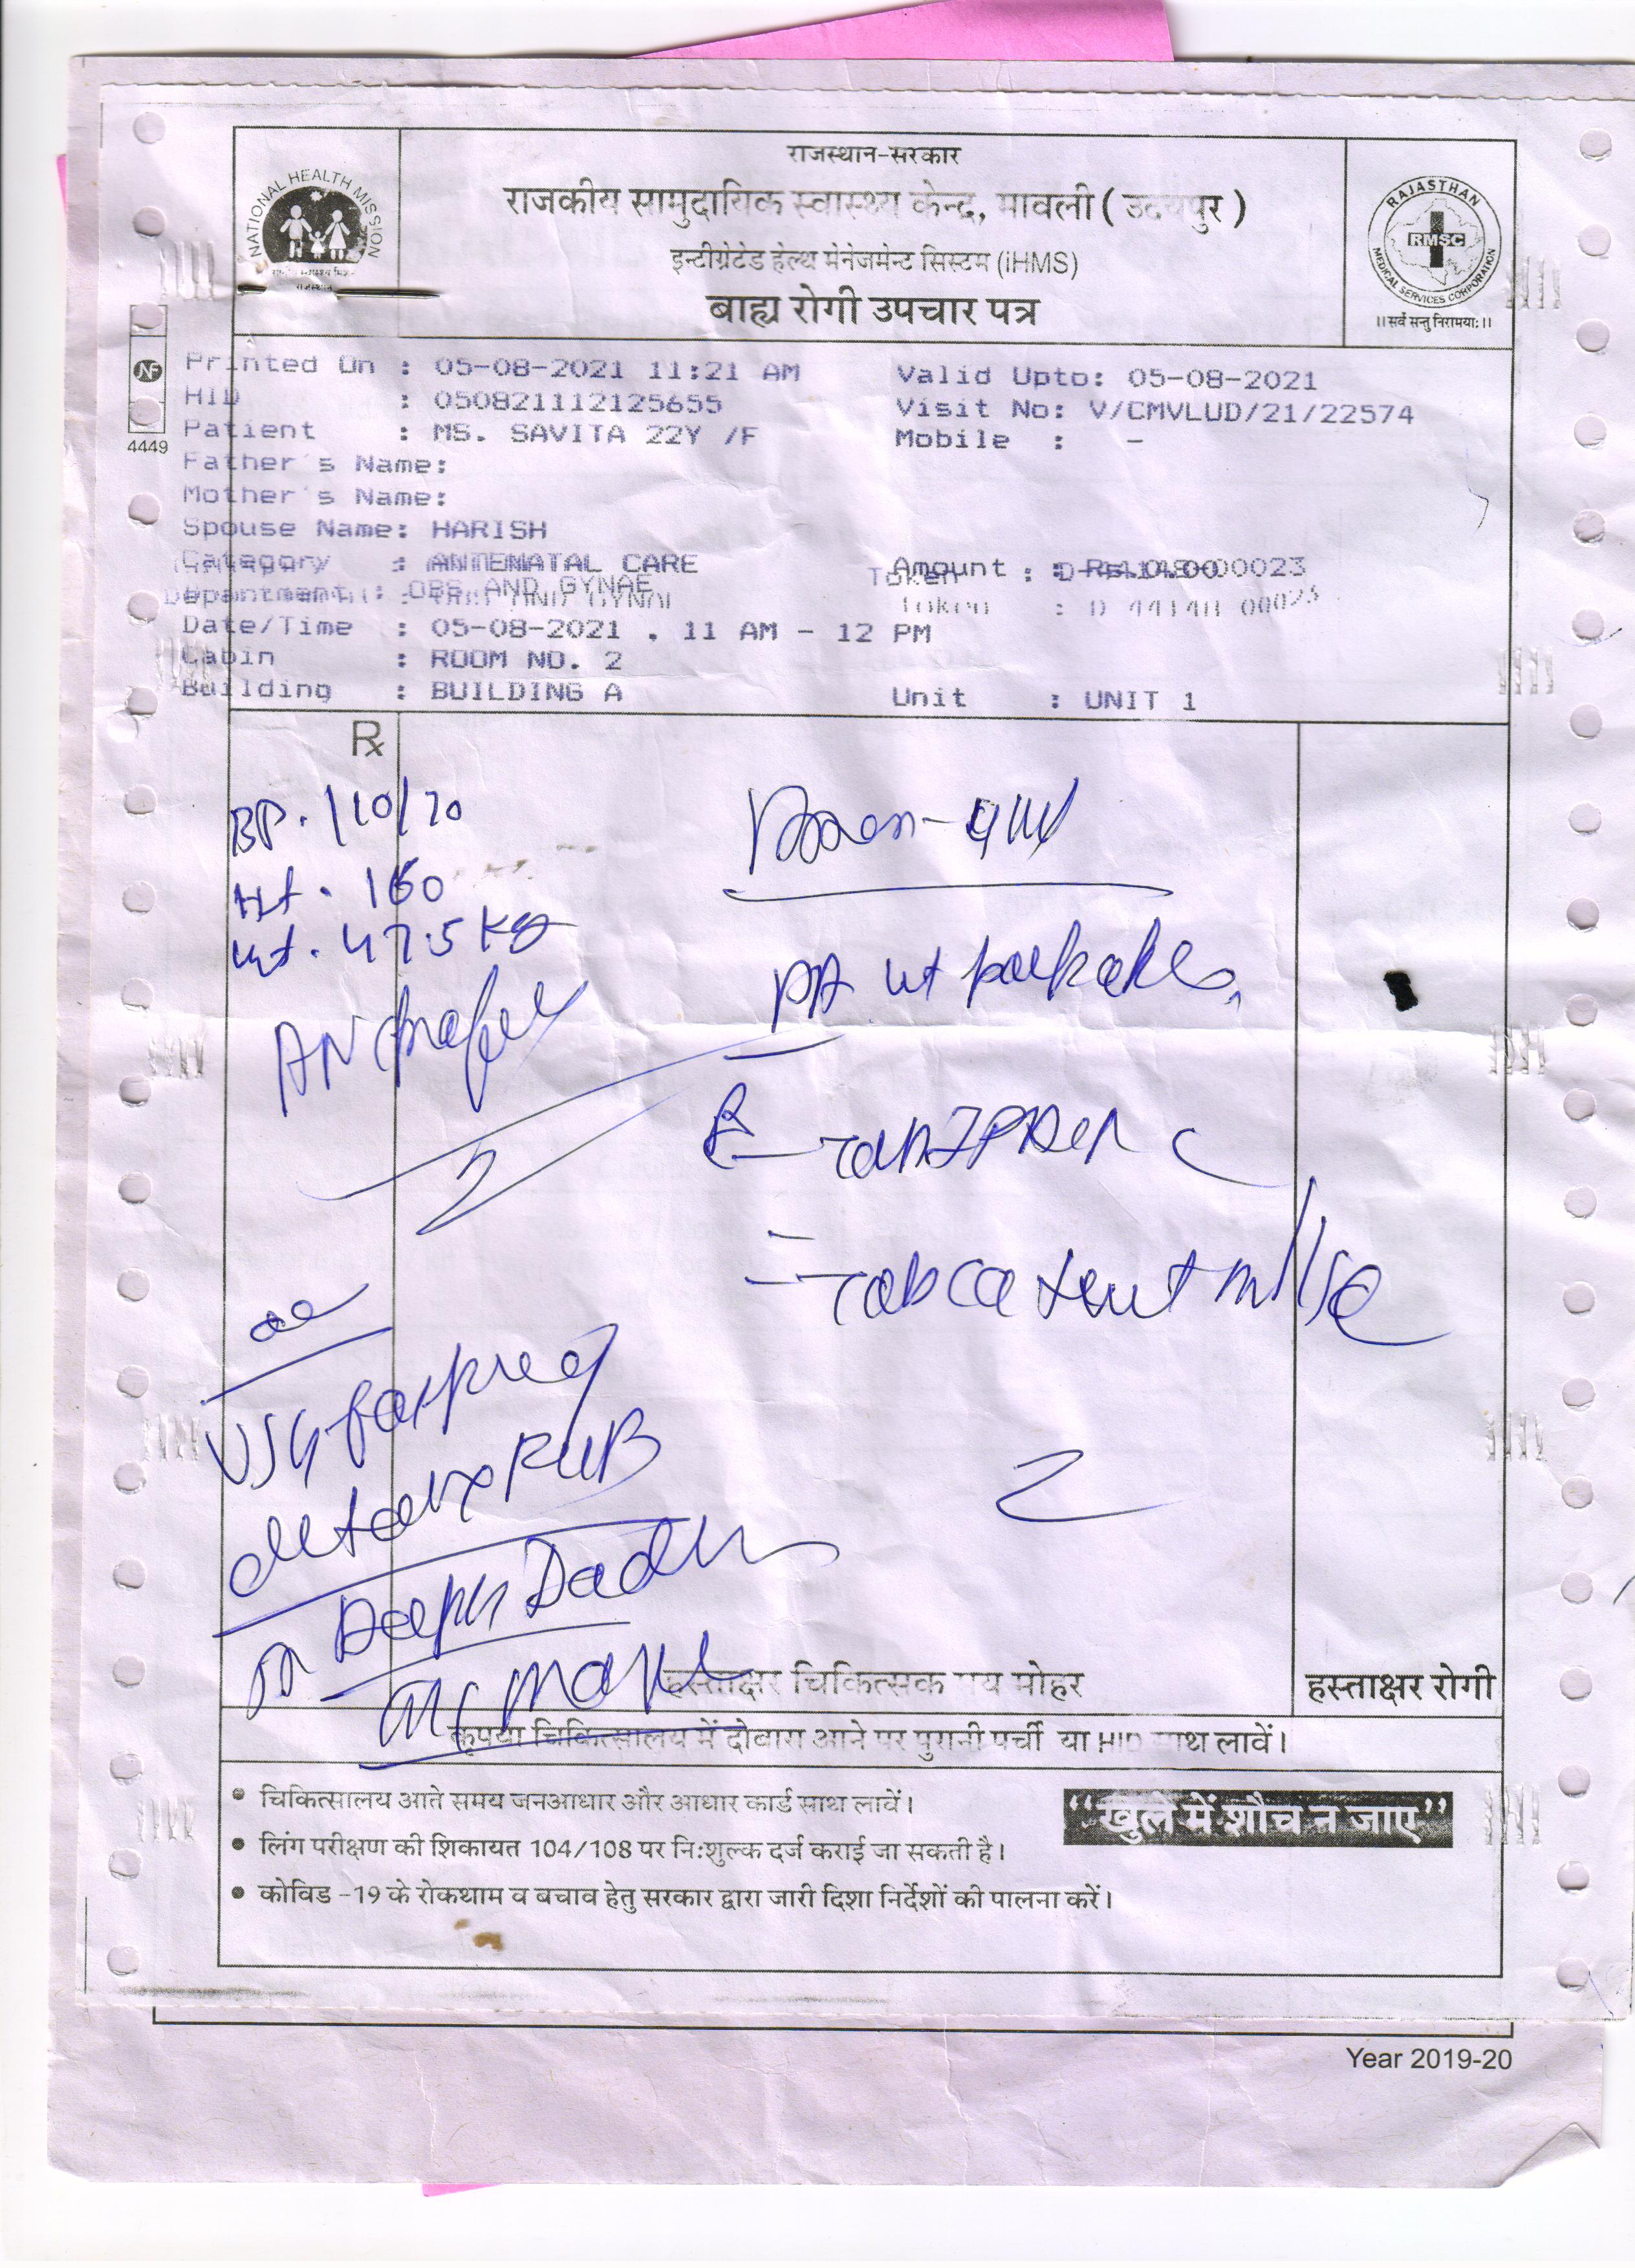 राजस्थान-सरकार
राजकीय सामुदायिक स्वास्थ्य केन्द्र, मावली ( उदयपुर )
इन्टीग्रेटेड हेल्थ मेनेजमेन्ट सिस्टम (iHMS)
बाह्य रोगी उपचार पत्र
NATIONAL HEALTH MISSION
RAJASTHAN
RMSC
MEDICAL SERVICES CORPORATION
।।सर्वे सन्तु निरामयाः।।
NF
4449
Printed On : 05-08-2021 11:21 AM Valid Upto: 05-08-2021
HID : 050821112125655 Visit No: V/CMVLUD/21/22574
Patient : MS. SAVITA 22Y /F Mobile : -
Father's Name:
Mother's Name:
Spouse Name: HARISH
Category : ANTENATAL CARE Amount :
Department : OBS AND GYNAE Token :
Date/Time : 05-08-2021 , 11 AM - 12 PM
Cabin : ROOM NO. 2
Building : BUILDING A Unit : UNIT 1
Rx
BP. 110/70
Ht. 160
wt. 47.5 kg
AN profile
PA ut palpable
USG for preg
हस्ताक्षर चिकित्सक मय मोहर
हस्ताक्षर रोगी
कृपया चिकित्सालय में दोबारा आने पर पुरानी पर्ची या HID साथ लावें।
• चिकित्सालय आते समय जनआधार और आधार कार्ड साथ लावें।
"खुले में शौच न जाए"
• लिंग परीक्षण की शिकायत 104/108 पर नि:शुल्क दर्ज कराई जा सकती है।
• कोविड -19 के रोकथाम व बचाव हेतु सरकार द्वारा जारी दिशा निर्देशों की पालना करें।
Year 2019-20